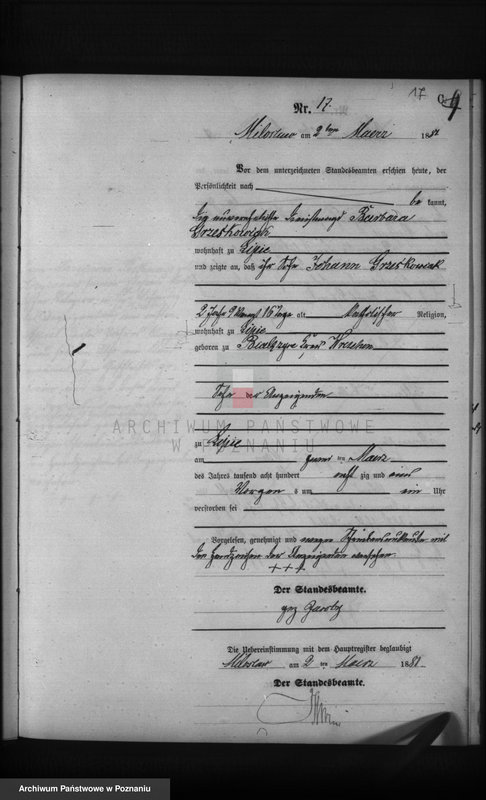 17
Nr. 17.
Miloslaw am 2ten Maerz 1881
Vor dem unterzeichneten Standesbeamten erschien heute, der
Persönlichkeit nach
be kannt,
die unverehelichte Dienstmagd Barbara
Grzeskowiak
wohnhaft zu Lipie
und zeigte an, daß ihr Sohn Johann Grzeskowiak
2 Jahr 9 Monat 16 Tage alt katholischer Religion,
wohnhaft zu Lipie
geboren zu Kreis Wreschen
Sohn der Anzeigenden
ARCHIWUM PAŃSTWOWE
W POZNANIU
zu Lipie
am zwei ten Maerz
des Jahres tausend acht hundert acht zig und eins
Morgen s um ein Uhr
verstorben sei
Vorgelesen, genehmigt und wegen Schreibensunkunde mit
den Handzeichen der Anzeigenden versehen.
+++
Der Standesbeamte.
gez
Die Uebereinstimmung mit dem Hauptregister beglaubigt
Miloslaw am 2 ten Maerz 1881.
Der Standesbeamte.
Archiwum Państwowe w Poznaniu